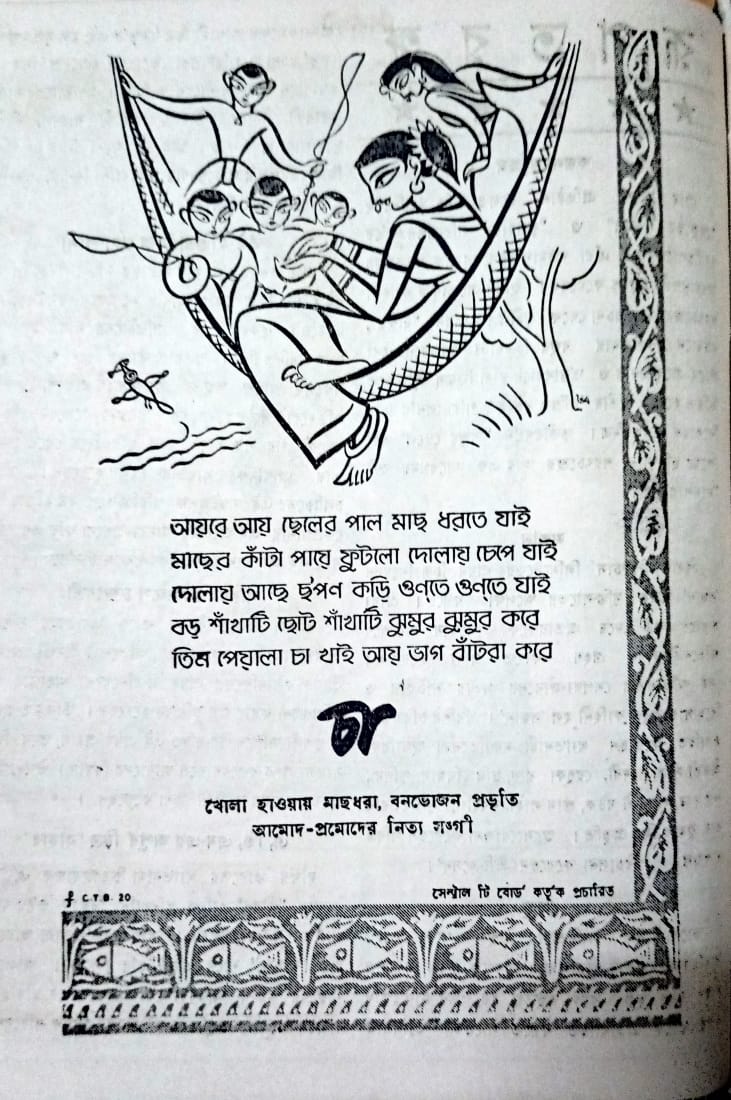 আয়রে আয় ছেলের পাল মাছ ধরতে যাই
মাছের কাঁটা পায়ে ফুটলো দোলায় চেপে যাই
দোলায় আছে ছ'পণ কড়ি গুণ্‌তে গুণ্‌তে যাই
বড় শাঁখাটি ছোট শাঁখাটি ঝুমুর ঝুমুর করে
তিন পেয়ালা চা খাই আয় ভাগ বাঁটরা করে
চা
খোলা হাওয়ায় মাছধরা, বনভোজন প্রভৃতি
আমোদ-প্রমোদের নিত্য সঙ্গী
C.T.B. 20
সেন্ট্রাল টি বোর্ড কর্তৃক প্রচারিত